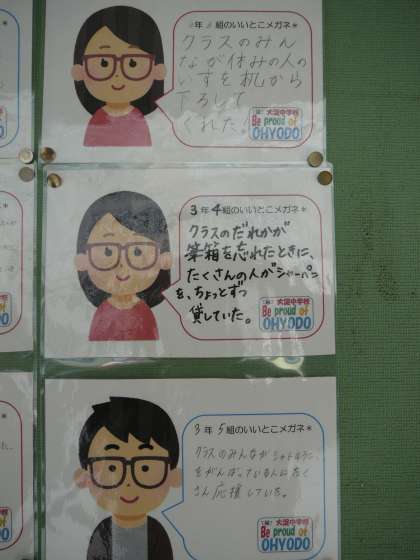 年 組のいいとこメガネ*
クラスのみん
なが休みの人の
いすを机から
下ろして
くれた!
大淀中学校
Be proud of
OHYODO
3年4組のいいとこメガネ*
クラスのだれかが
筆箱を忘れたときに、
たくさんの人がシャーペン
を、ちょっとずつ
貸していた。
大淀中学校
Be proud of
OHYODO
3年5組のいいとこメガネ*
クラスのみんなが
をがんばっている人にたく
さん応援していた。
大淀中学校
Be proud of
OHYODO